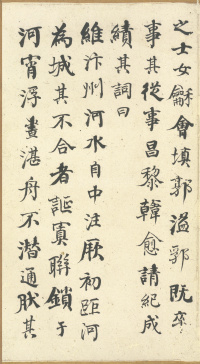 之士女龢會填郭溢郛既卒
事其從事昌黎韓愈請紀成
績其詞曰
維汴州河水自中注厥初距河
為城其不合者誕寘聯鎖于
河宵浮晝湛舟不潛通肰其